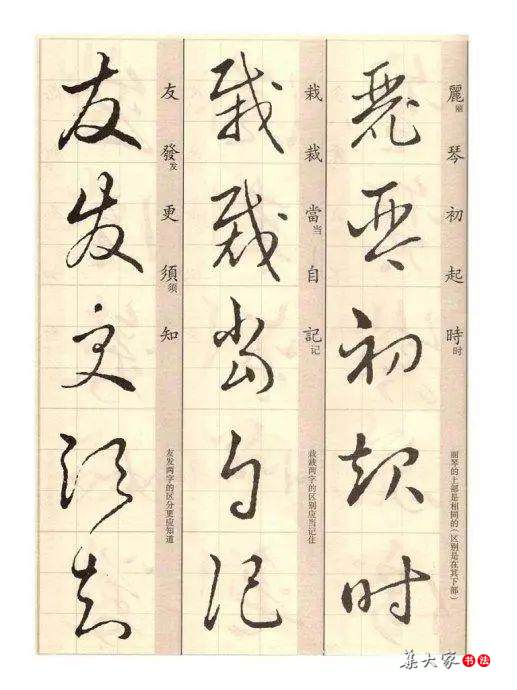 麗丽琴初起時时
麗琴初起時
丽琴的上部是相同的（区别是在其下部）
栽裁當当自記记
栽裁當自記
栽裁两字的区别应当记住
友發发更須须知
友發更須知
友发两字的区分更应知道
集大家书法